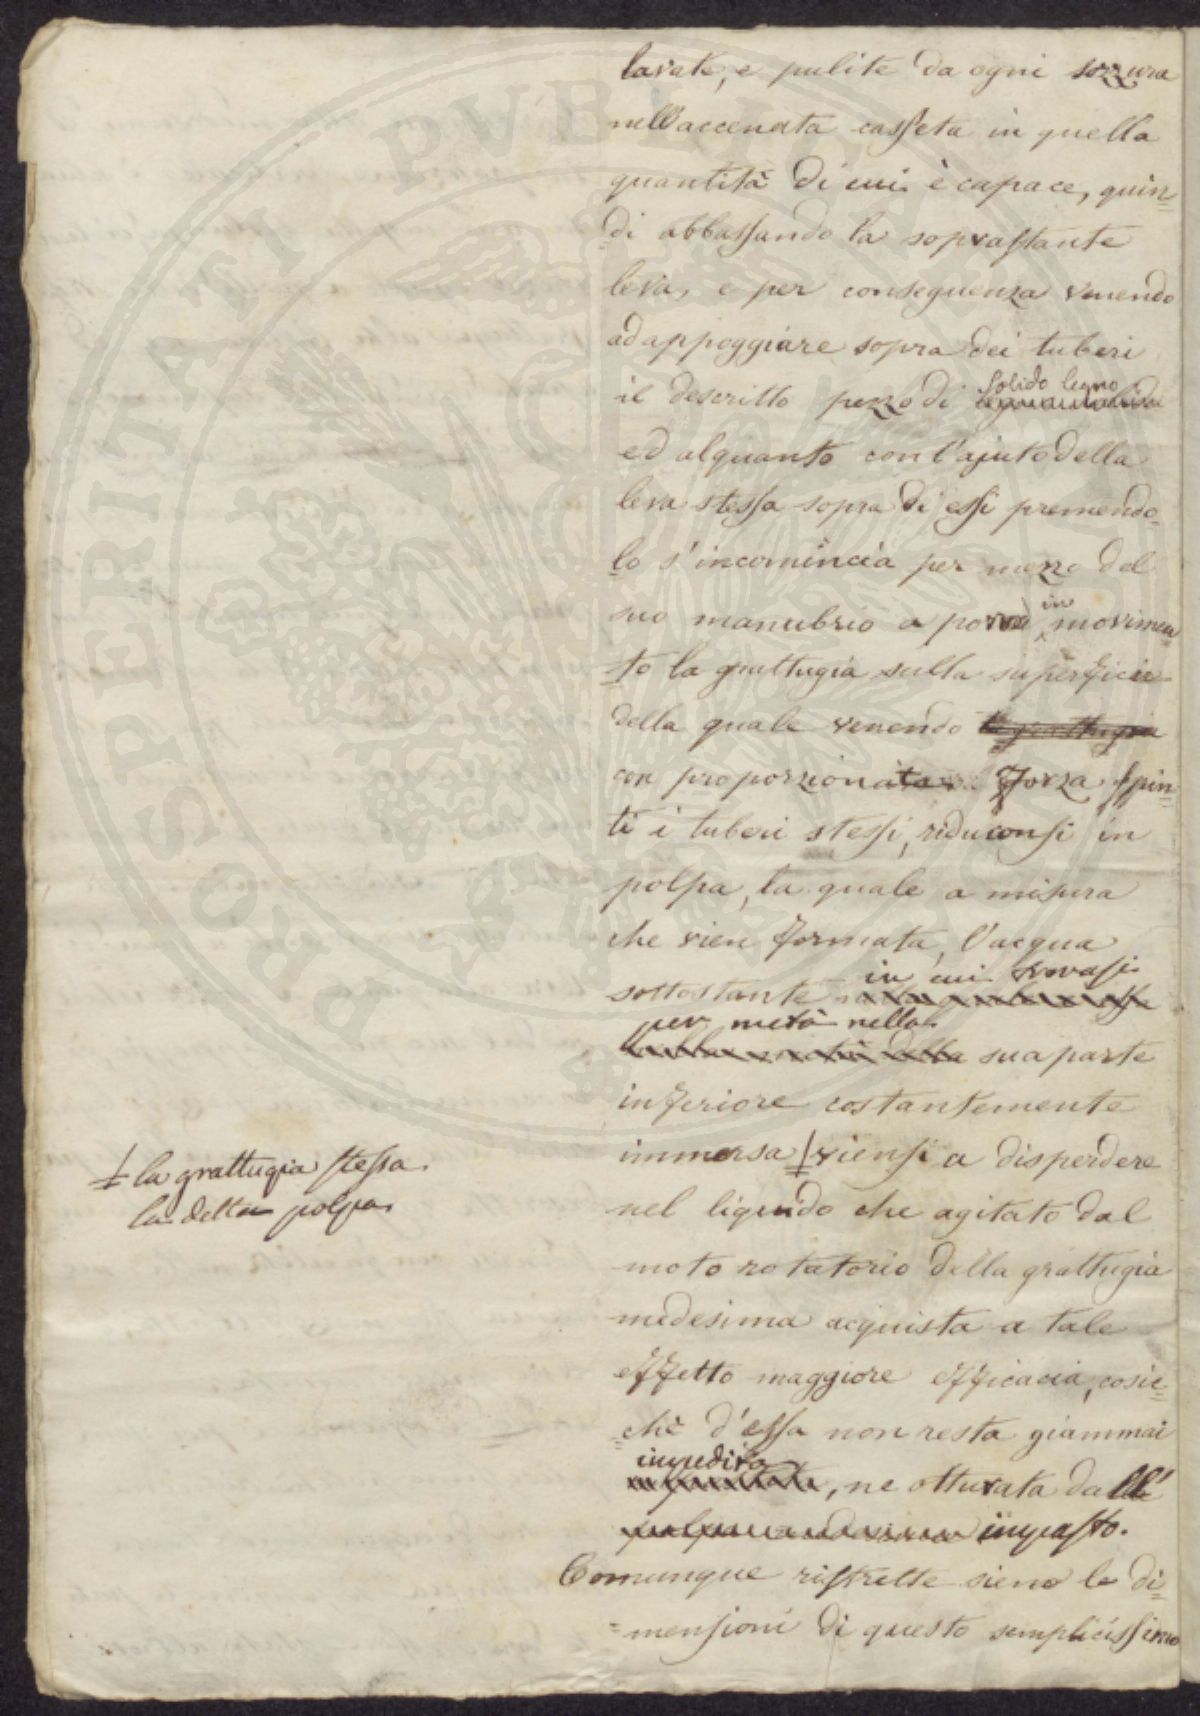 lavate, e pulite da ogni sozzura
nell'accenata casseta in quella
quantità di cui è capace, quin=
=di abbassando la soprastante
leva, e per conseguenza venendo
ad appoggiare sopra dei tuberi
solido legno
il descritto pezzo di
ed alquanto con l'ajuto della
leva stessa sopra di essi premendo=
=lo s'incomincia per mezzo del
in
suo manubrio a porre movimen=
=to la grattugia sulla superficie
della quale venendo la grattugia
con proporzionata forza spin=
ti i tuberi stessi, riduconsi in
polpa, la quale a misura
che vien formata, l'acqua
in cui trovasi
sottostante
per metà nella
sua parte
inferiore costantemente
immersa ‡ viensi a disperdere
‡ la grattugia stessa
la detta polpa
nel liquido che agitato dal
moto rotatorio della grattugia
medesima acquista a tale
effetto maggiore efficacia, cosic=
=chè d'essa non resta giammai
impedita
, ne otturata dall'
impasto.
Comunque ristrette sieno le di=
=mensioni di questo semplicissimo
PROSPERITATI PVBLICAE